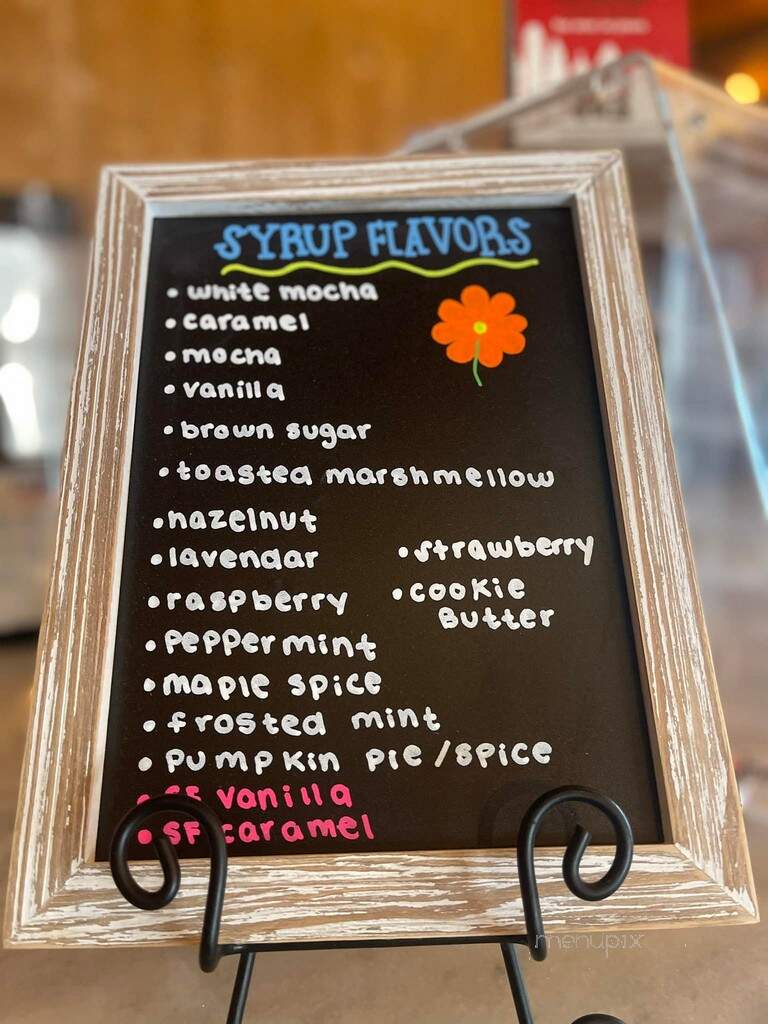 SYRUP FLAVORS
• white mocha
• caramel
• mocha
• vanilla
• brown sugar
• toasted marshmellow
• hazelnut
• lavendar
• raspberry
• peppermint
• maple spice
• frosted mint
• pumpkin pie/spice
• SF vanilla
• SF caramel
• strawberry
• cookie
Butter
menupix